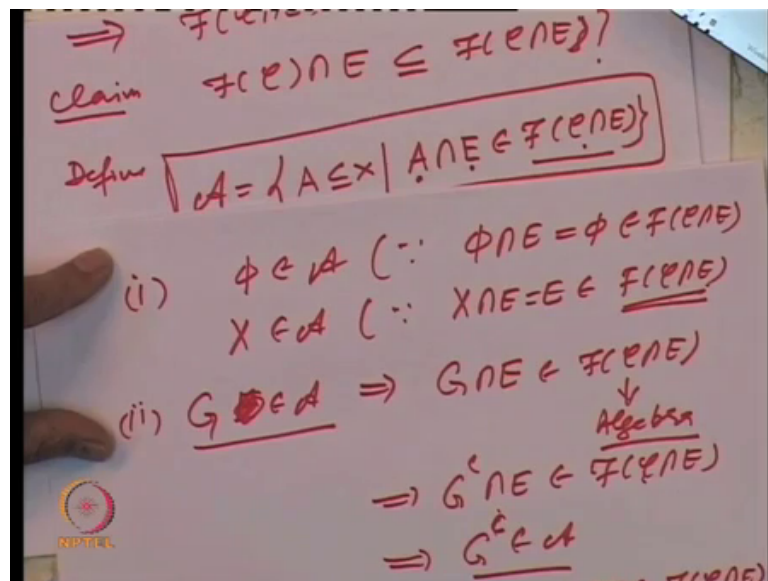 ⟹ F(C∩E
Claim F(C)∩E ⊆ F(C∩E)?
Define A = {A ⊆ X | A∩E ∈ F(C∩E)}
(i) φ ∈ A (∵ φ∩E = φ ∈ F(C∩E)
X ∈ A (∵ X∩E = E ∈ F(C∩E)
(ii) G ∈ A ⟹ G∩E ∈ F(C∩E)
↓
Algebra
⟹ Gᶜ∩E ∈ F(C∩E)
⟹ Gᶜ ∈ A
NPTEL